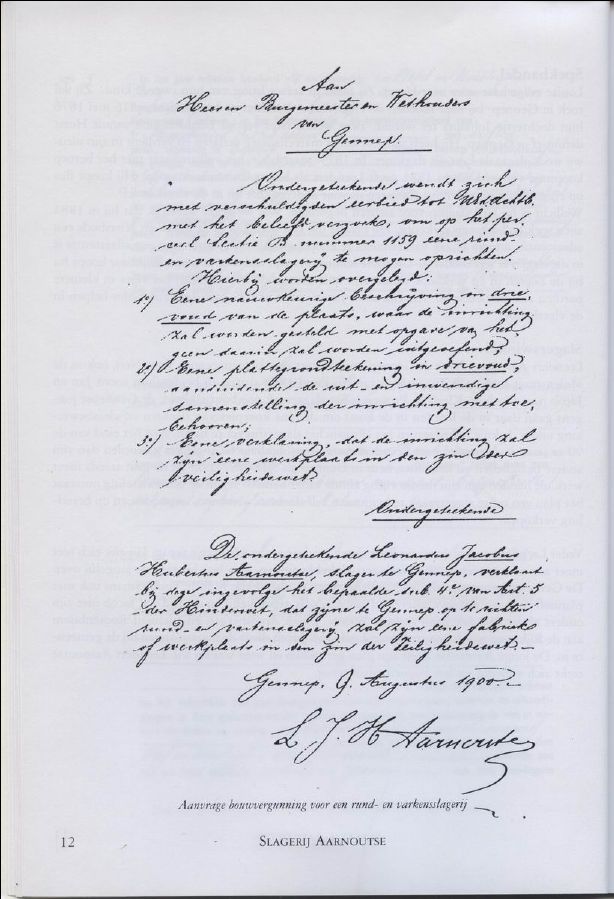 Aan
Heeren Burgemeester en Wethouders
van
Gennep.
Ondergeteekende wendt zich
met verschuldigden eerbied tot UEd. Achtb.
met het beleefd verzoek, om op het per,
ceel Sectie B. nummer 1159 eene rund-
en varkensslagerij te mogen oprichten.
Hierbij worden overgelegd:
1o) Eene nauwkeurige beschrijving in drie,
voud van de plaats, waar de inrichting
zal worden gesteld met opgave van het
geen daarin zal worden uitgeoefend;
2o) Eene plattegrondteekening in drievoud,
aanduidende de uit- en inwendige
samenstelling der inrichting met toe,
behooren;
3o) Eene verklaring, dat de inrichting zal
zijn eene werkplaats in den zin der
veiligheidswet.
Ondergeteekende
De ondergeteekende Leonardus Jacobus
Hubertus Aarnoutse, slager te Gennep, verklaart
bij deze ingevolge het bepaalde sub. 4e. van Art. 5
der Hinderwet, dat zijne te Gennep op te richten
rund- en varkensslagerij zal zijn eene fabriek
of werkplaats in den zin der Veiligheidswet. -
Gennep, 9 Augustus 1900.-
L J H Aarnoutse
Aanvrage bouwvergunning voor een rund- en varkensslagerij
12
SLAGERIJ AARNOUTSE